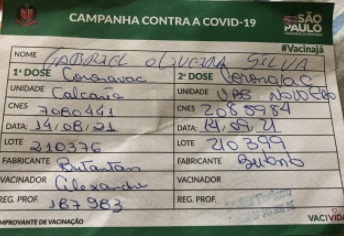 CAMPANHA CONTRA A COVID-19
SÃO PAULO
#Vacinajá
NOME GABRIEL OLIVEIRA SILVA
1ª DOSE Coronavac
UNIDADE
CNES 7080441
DATA: 14/08/21
LOTE 210376
FABRICANTE Butantan
VACINADOR Alexandre
REG. PROF. 187983
2ª DOSE Coronavac
UNIDADE UBS
CNES 2085984
DATA: 14.09.21
LOTE 210399
FABRICANTE
VACINADOR
REG. PROF.
COMPROVANTE DE VACINAÇÃO